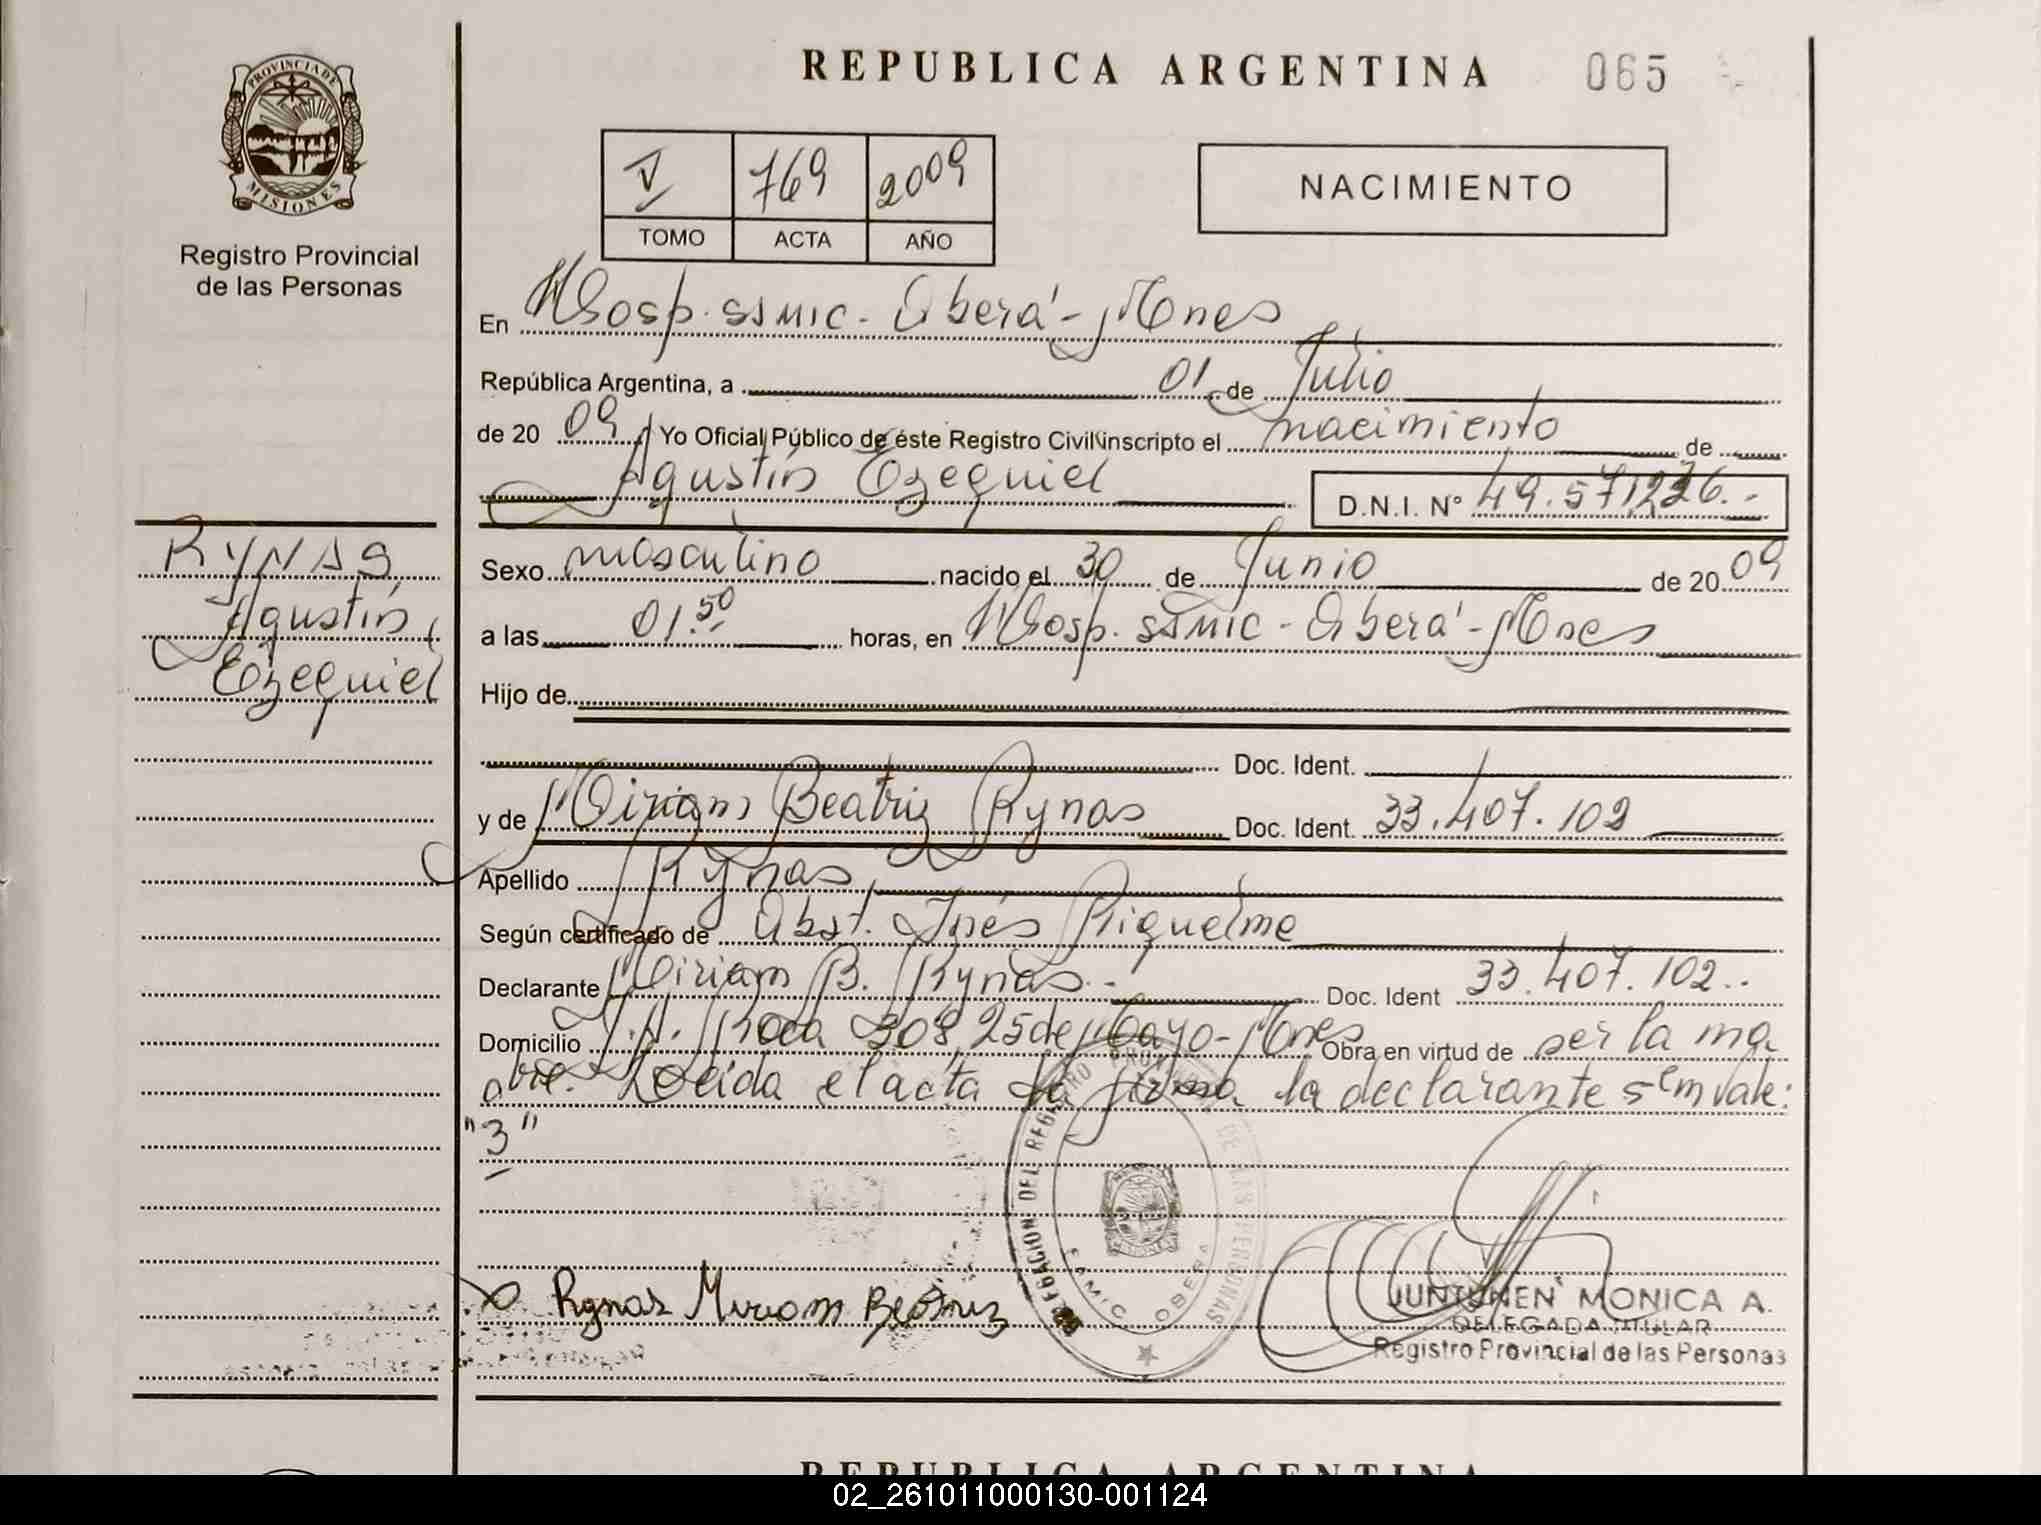 REPUBLICA ARGENTINA 065
PROVINCIA DE
MISIONES
Registro Provincial
de las Personas
V 769 2009
TOMO ACTA AÑO
NACIMIENTO
En Hosp. SAMIC - Oberá - Mnes
República Argentina, a 01 de Julio
de 20 09 Yo Oficial Público de éste Registro Civil inscripto el nacimiento de
Agustín Ezequiel D.N.I. Nº 49.571.
RYNAS,
Agustín
Ezequiel
Sexo masculino nacido el 30 de Junio de 20 09
a las 01.50 horas, en Hosp. SAMIC - Oberá - Mnes
Hijo de
Doc. Ident.
y de Miriam Beatriz Rynas Doc. Ident. 33.407.102
Apellido Rynas
Según certificado de Obst. Inés Riquelme
Declarante Miriam B. Rynas.- Doc. Ident 33.407.102.-
Domicilio J.A. Roca 308, 25 de Mayo - Mnes Obra en virtud de ser la ma
dre. Leída el acta la firma la declarante vale:
"3"
DELEGACION DEL REGISTRO PROVINCIAL DE LAS PERSONAS
SAMIC OBERA
Rynas Miriam Beatriz
JUNTUNEN MONICA A.
DELEGADA TITULAR
Registro Provincial de las Personas
REPUBLICA ARGENTINA
02_261011000130-001124